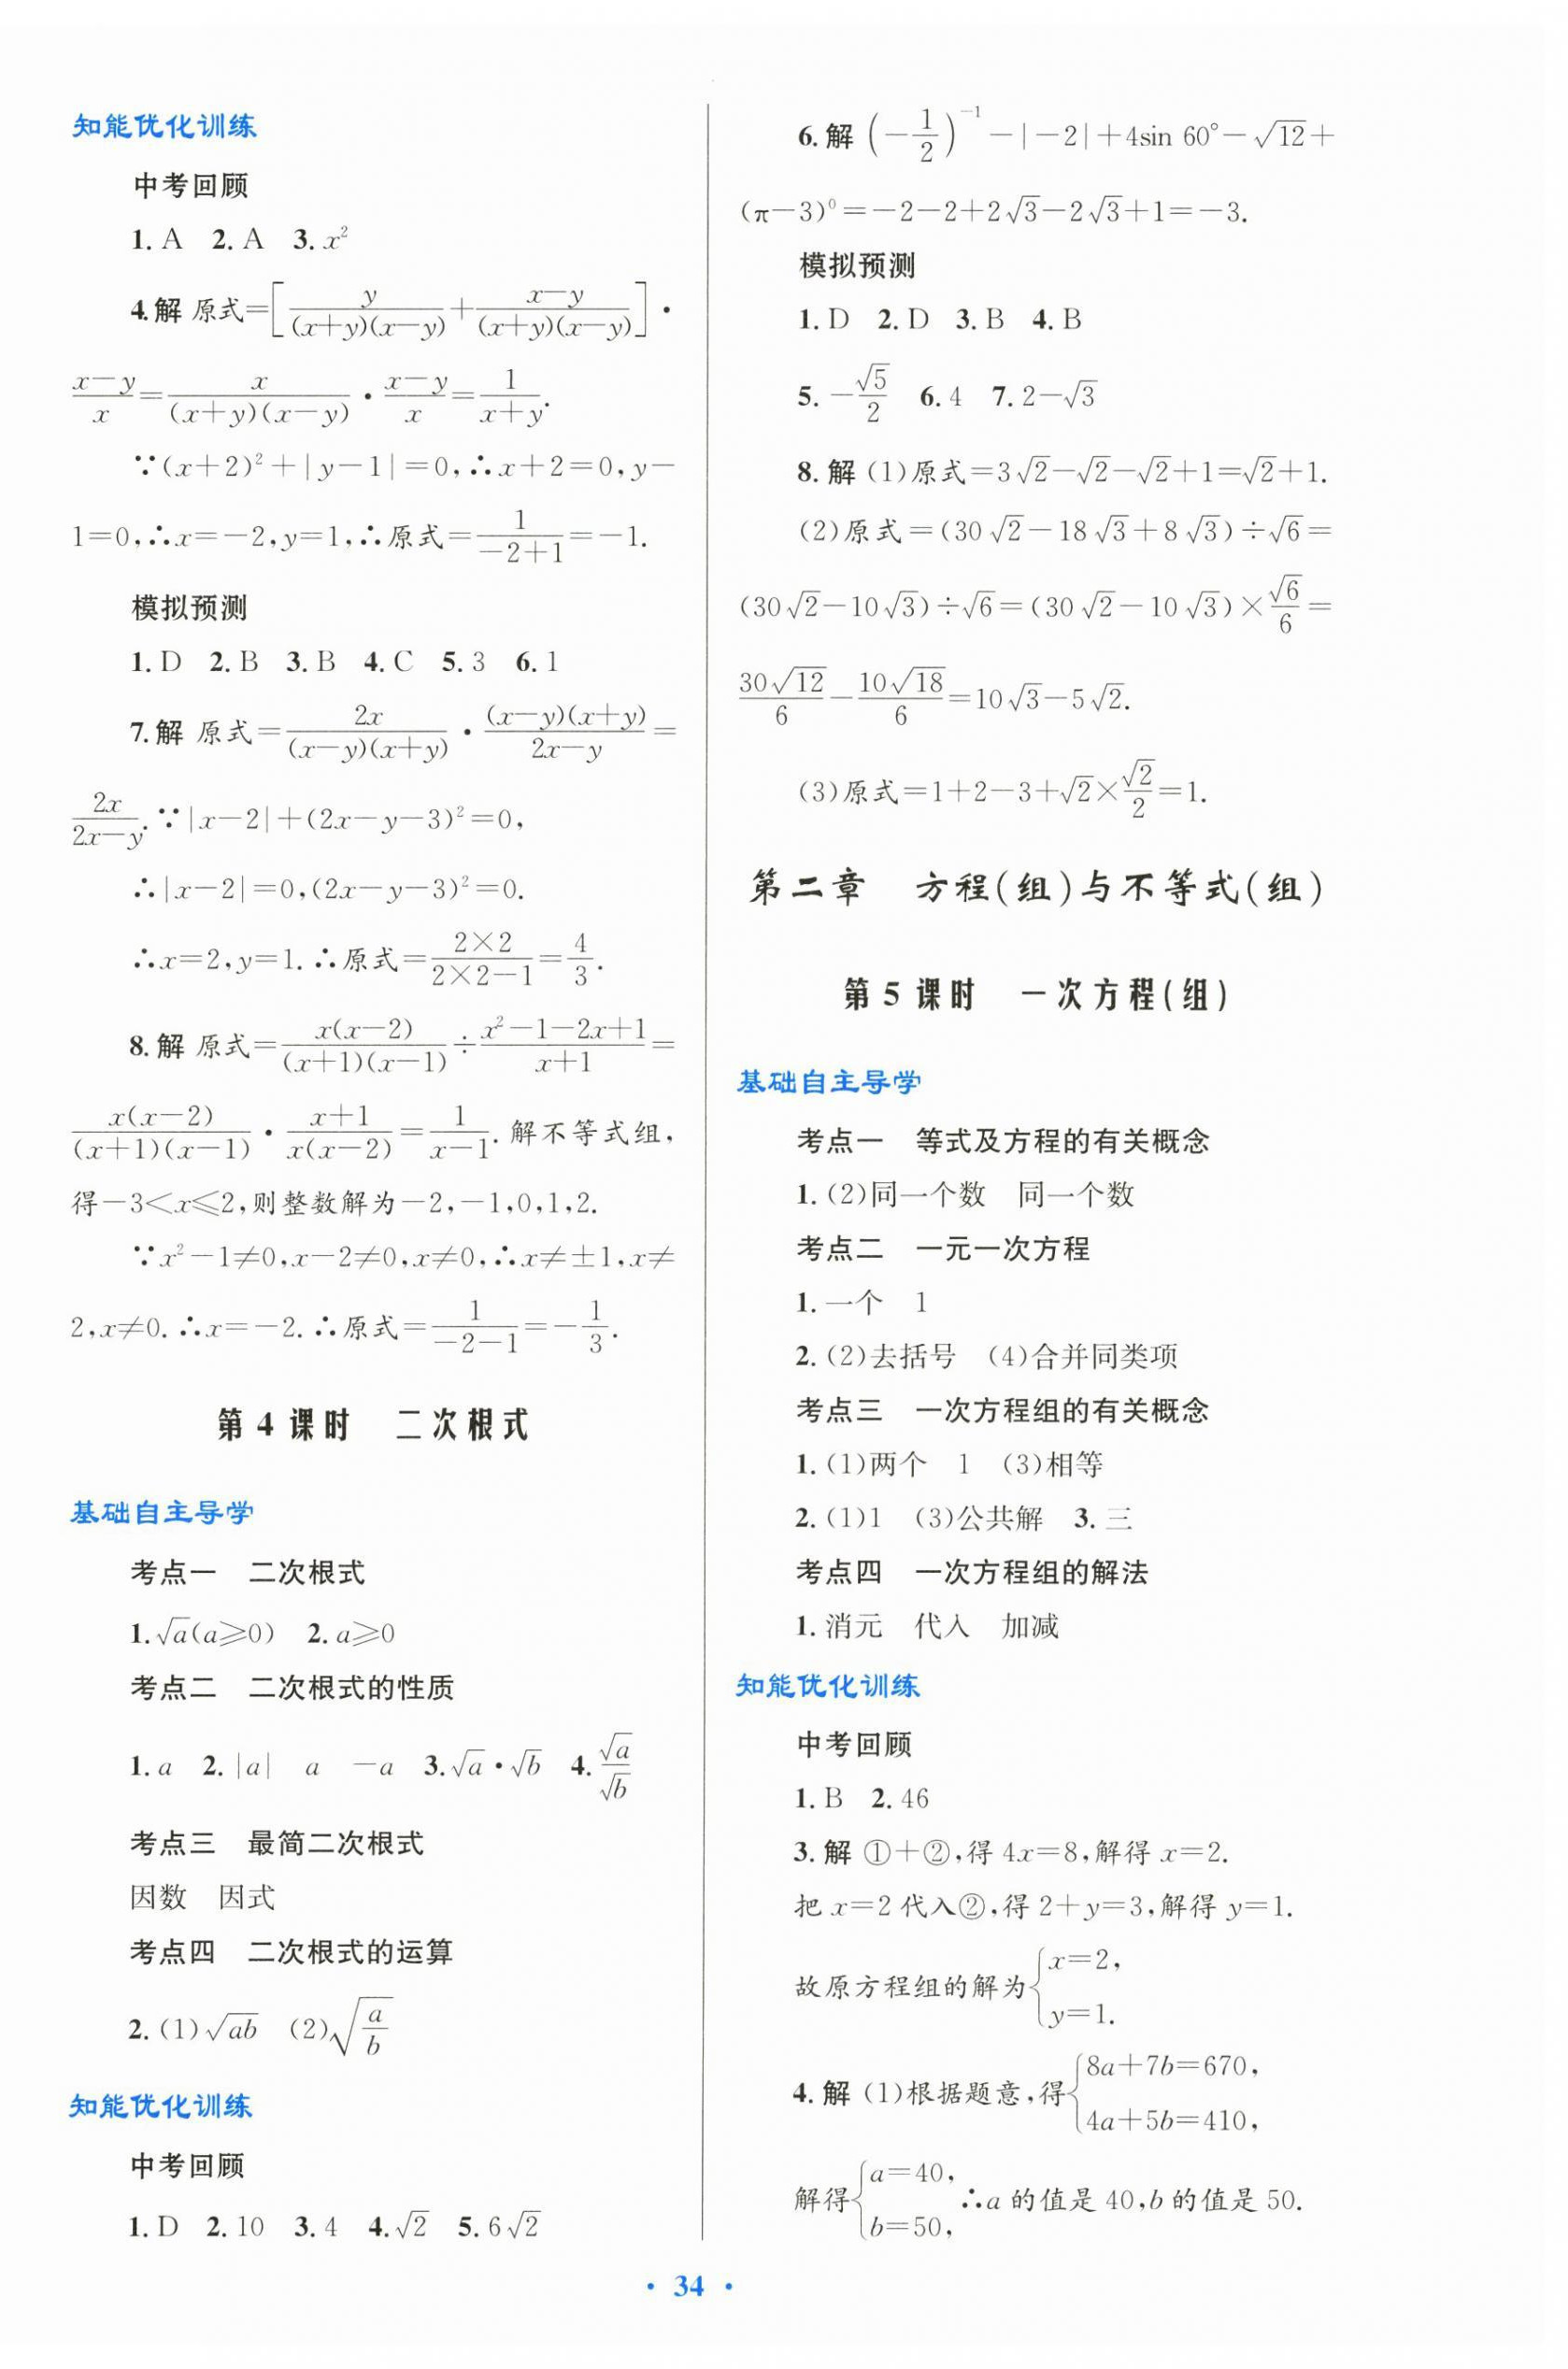 知能优化训练
中考回顾
1. A 2. A 3. x²
4.解 原式=[y/((x+y)(x-y))+(x-y)/((x+y)(x-y))]·
(x-y)/x=x/((x+y)(x-y))·(x-y)/x=1/(x+y).
∵(x+2)²+|y-1|=0,∴x+2=0,y-
1=0,∴x=-2,y=1,∴原式=1/(-2+1)=-1.
模拟预测
1. D 2. B 3. B 4. C 5. 3 6. 1
7.解 原式=2x/((x-y)(x+y))·((x-y)(x+y))/(2x-y)=
2x/(2x-y).∵|x-2|+(2x-y-3)²=0,
∴|x-2|=0,(2x-y-3)²=0.
∴x=2,y=1.∴原式=(2×2)/(2×2-1)=4/3.
8.解 原式=x(x-2)/((x+1)(x-1))÷(x²-1-2x+1)/(x+1)=
x(x-2)/((x+1)(x-1))·(x+1)/(x(x-2))=1/(x-1).解不等式组,
得-3<x≤2,则整数解为-2,-1,0,1,2.
∵x²-1≠0,x-2≠0,x≠0,∴x≠±1,x≠
2,x≠0.∴x=-2.∴原式=1/(-2-1)=-1/3.
第 4 课时 二次根式
基础自主导学
考点一 二次根式
1.√a(a≥0) 2. a≥0
考点二 二次根式的性质
1. a 2. |a| a -a 3.√a·√b 4.√a/√b
考点三 最简二次根式
因数 因式
考点四 二次根式的运算
2. (1)√(ab) (2)√(a/b)
知能优化训练
中考回顾
1. D 2. 10 3. 4 4.√2 5. 6√2
6.解 (-1/2)⁻¹-|-2|+4sin 60°-√12+
(π-3)⁰=-2-2+2√3-2√3+1=-3.
模拟预测
1. D 2. D 3. B 4. B
5. -√5/2 6. 4 7. 2-√3
8. 解 (1)原式=3√2-√2-√2+1=√2+1.
(2)原式=(30√2-18√3+8√3)÷√6=
(30√2-10√3)÷√6=(30√2-10√3)×√6/6=
30√12/6-10√18/6=10√3-5√2.
(3)原式=1+2-3+√2×√2/2=1.
第二章 方程(组)与不等式(组)
第 5 课时 一次方程(组)
基础自主导学
考点一 等式及方程的有关概念
1. (2)同一个数 同一个数
考点二 一元一次方程
1. 一个 1
2. (2)去括号 (4)合并同类项
考点三 一次方程组的有关概念
1. (1)两个 1 (3)相等
2. (1)1 (3)公共解 3. 三
考点四 一次方程组的解法
1. 消元 代入 加减
知能优化训练
中考回顾
1. B 2. 46
3. 解 ①+②,得 4x=8,解得 x=2.
把 x=2 代入②,得 2+y=3,解得 y=1.
故原方程组的解为{x=2,
y=1.
4. 解 (1)根据题意,得{8a+7b=670,
4a+5b=410,
解得{a=40,
b=50, ∴a 的值是 40,b 的值是 50.
· 34 ·